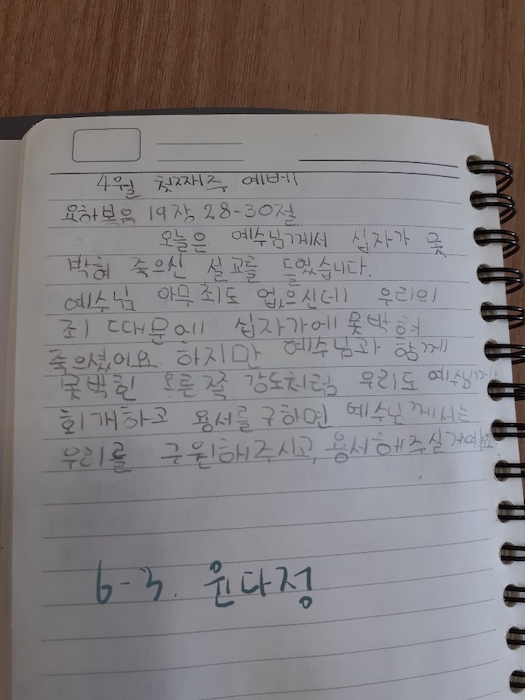 4월 첫째주 예배
요한복음 19장 28-30절
오늘은 예수님께서 십자가 못
박혀 죽으신 설교를 들었습니다.
예수님 아무죄도 없으신데 우리의
죄 때문에 십자가에 못박혀
죽으셨어요. 하지만 예수님과 함께
못박힌 오른쪽 강도처럼 우리도 예수님께
회개하고 용서를 구하면 예수님께서는
우리를 구원해주시고, 용서해주실거예요.
6-3. 원다정